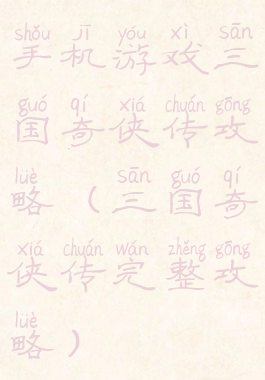 shǒu jī yóu xì sān
手机游戏三
guó qí xiá chuán gōng
国奇侠传攻
lüè sān guó qí
略（三国奇
xiá chuán wán zhěng gōng
侠传完整攻
lüè
略）